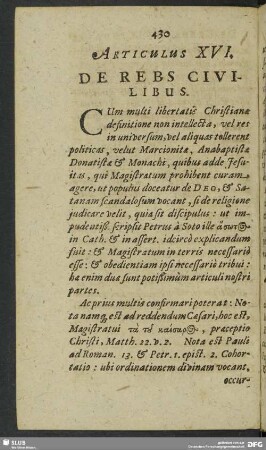 430
ARTICULUS XVI.
DE REBS CIVI-
LIBUS.
CUm multi libertatis Christianæ
definitione non intellecta, vel res
in universum, vel aliquas tollerent
politicas, velut Marcionitæ, Anabaptistæ
Donatistæ & Monachi, quibus adde Jesu-
itas, qui Magistratum prohibent curam
agere, ut populus doceatur de DEO, & Sa-
tanam scandalosum vocant, si de religione
judicare velit, quia sit discipulus: ut im-
pudentiß. scripsit Petrus à Soto ille
in Cath. & in assert. idcircò explicandum
fuit: & Magistratum in terris necessariò
esse: & obedientiam ipsi necessariò tribui:
hæ enim duæ sunt potißimùm articuli nostri
partes.
Ac prius multis confirmari poterat: No-
ta namq, est ad reddendum Cæsari, hoc est,
Magistratui τὰ τȣ͂ καίσαρ⊕, præceptio
Christi, Matth. 22. v. 2. Nota est Pauli
ad Roman. 13. & Petr. 1. epist. 2. Cohor-
tatio: ubi ordinationem divinam vocant,
occur-
SLUB